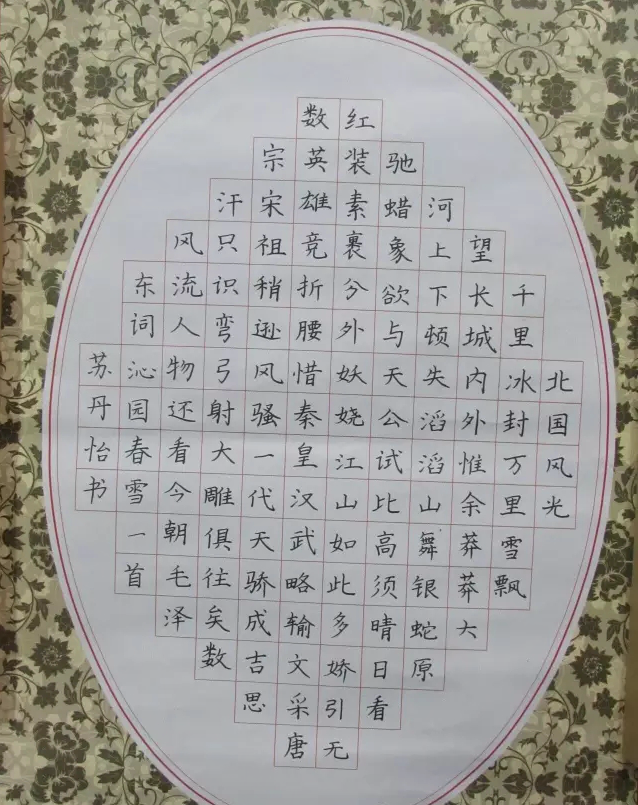 北国风光
千里冰封万里雪飘
望长城内外惟余莽莽大
河上下顿失滔滔山舞银蛇原
驰蜡象欲与天公试比高须晴日看
红装素裹兮外妖娆江山如此多娇引无
数英雄竞折腰惜秦皇汉武略输文采唐
宗宋祖稍逊风骚一代天骄成吉思
汗只识弯弓射大雕俱往矣数
风流人物还看今朝毛泽
东词沁园春雪一首
苏丹怡书